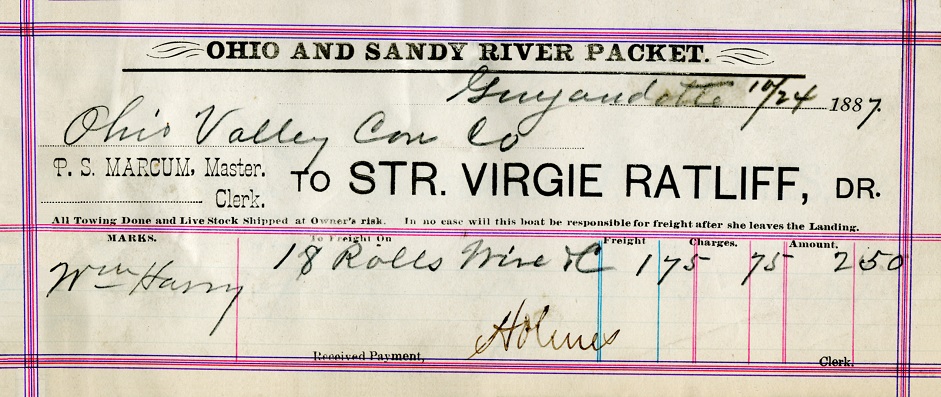 OHIO AND SANDY RIVER PACKET.
Guyandotte 10/24 1887.
Ohio Valley Con Co
P. S. MARCUM, Master.
Clerk.
TO STR. VIRGIE RATLIFF, DR.
All Towing Done and Live Stock Shipped at Owner's risk. In no case will this boat be responsible for freight after she leaves the Landing.
MARKS. To Freight On Freight Charges. Amount.
Wm Harry 18 Rolls Wire &C 1 75 75 2 50
Holmes
Received Payment, Clerk.